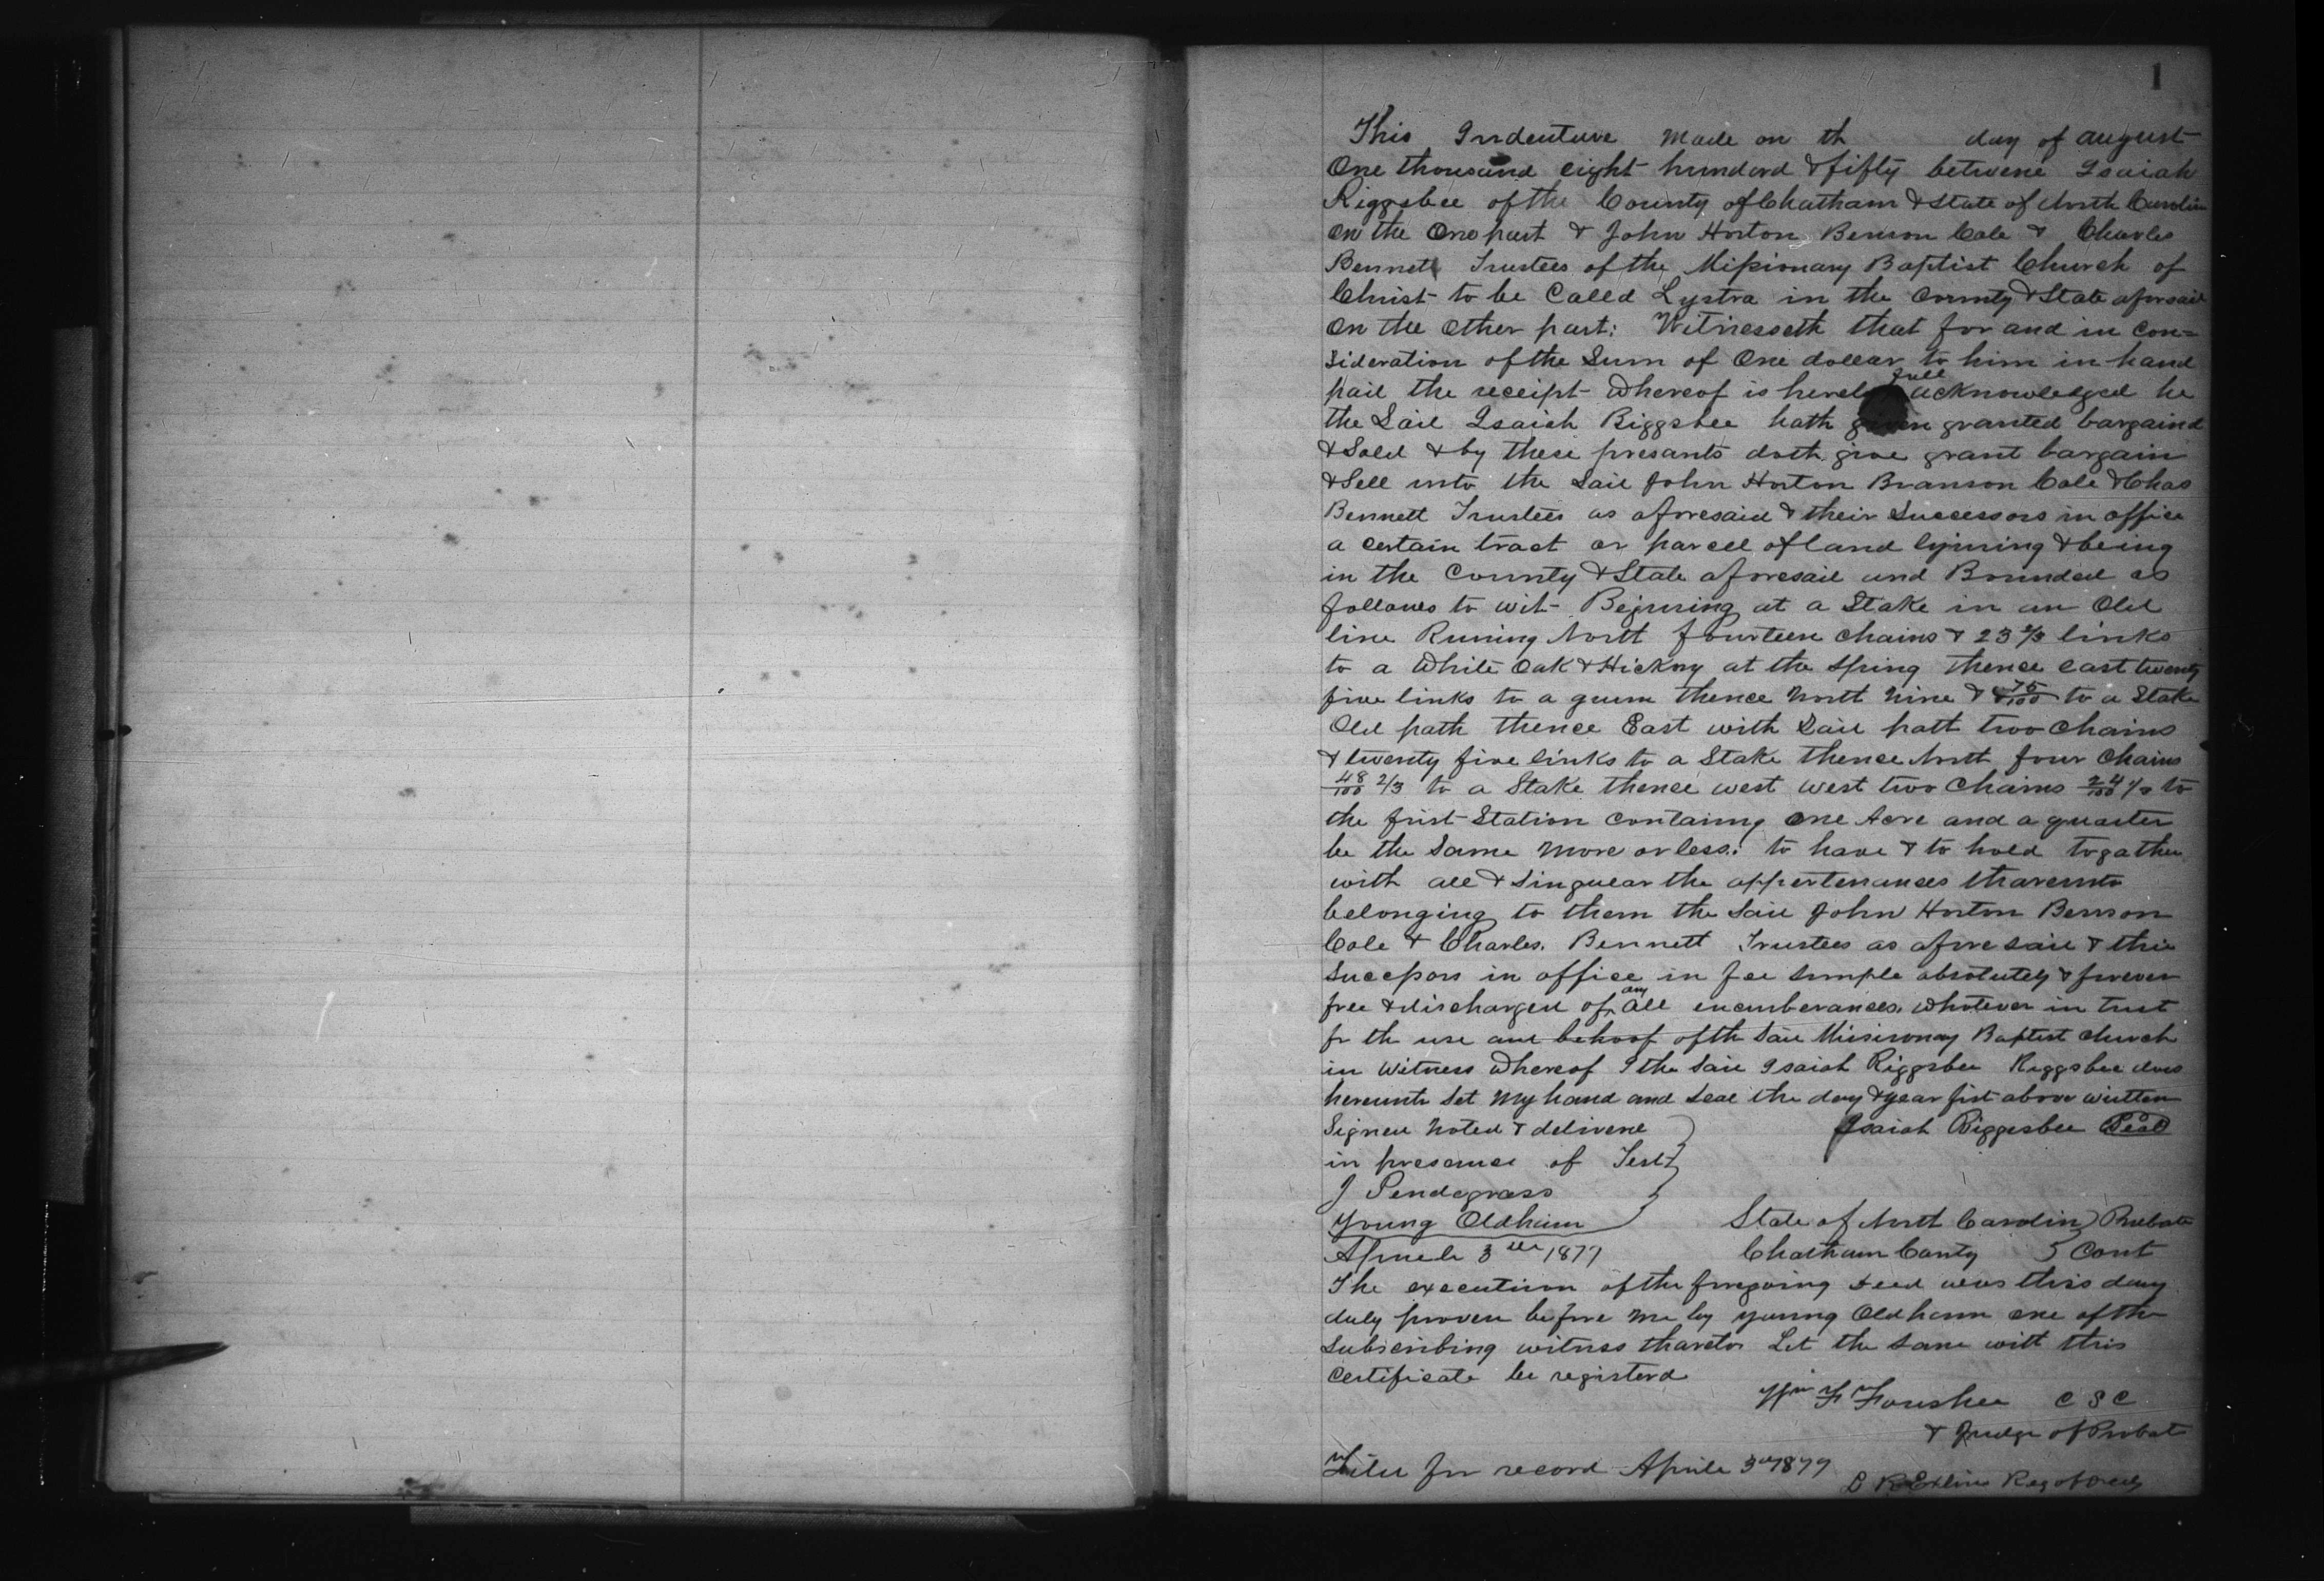 1
This Indenture made on th day of august
One thousand eight hundord & fifty betweene Isaiah
Riggsbee of the County of Chatham & State of North Carolin
on the One part & John Horton Benson Cole & Charles
Bennett Trustees of the Missionary Baptist Church of
Christ to be Called Lystra in the County & State aforsaid
on the other part: Witnesseth that for and in con=
sideration of the Sum of One dollar to him in hand
paid the receipt whereof is hereby full acknowledged he
the Said Isaiah Riggsbee hath given granted bargaind
& Sold & by these presants doth give grant bargain
& Sell unto the Said John Horton Branson Cole & Chas
Bennett Trustees as aforesaid & their Successors in office
a certain tract or parcel of land lying & being
in the County & State aforesaid and Bounded as
follows to wit- Begining at a Stake in an Old
line Runing North fourteen chains & 23 2/3 links
to a White Oak & Hickory at the Spring thence east twenty
five links to a gum thence North Nine & 75/100 to a Stake
Old path thence East with Said path two chains
& twenty five links to a Stake thence North four Chains
48/100 2/3 to a Stake thence west west two Chains 24/100 to
the first Station containg One Acre and a quarter
be the Same more or less: to have & to hold togather
with all & Singular the appertenances thareunto
belonging to them the Said John Horton Benson
Cole & Charles. Bennett Trustees as afore said & thir
Successors in office in fee Simple absolutely & forever
free & discharged of any all encumberances. whatever in trust
for th use and behoof of th Said Missionary Baptist Church
in Witness Whereof I the Said Isaiah Riggsbee Riggsbee does
hereunto Set My hand and Seal the day & year first above written
Signed Noted & delivered Isaiah Riggsbee Seal
in presence of Test
J Pendegrass
Young Oldham State of North Carolin Probate
Aprile 3rd 1877 Chatham County Court
The execution of the foregoing Deed was this day
duly proven before me by young Oldham one of the
Subscribing witness thareto Let the Same with this
Certificate be registerd
Wm F Foushee C S C
& Judge of Probate
Filed for record Aprile 3rd 1879
Reg of Deeds